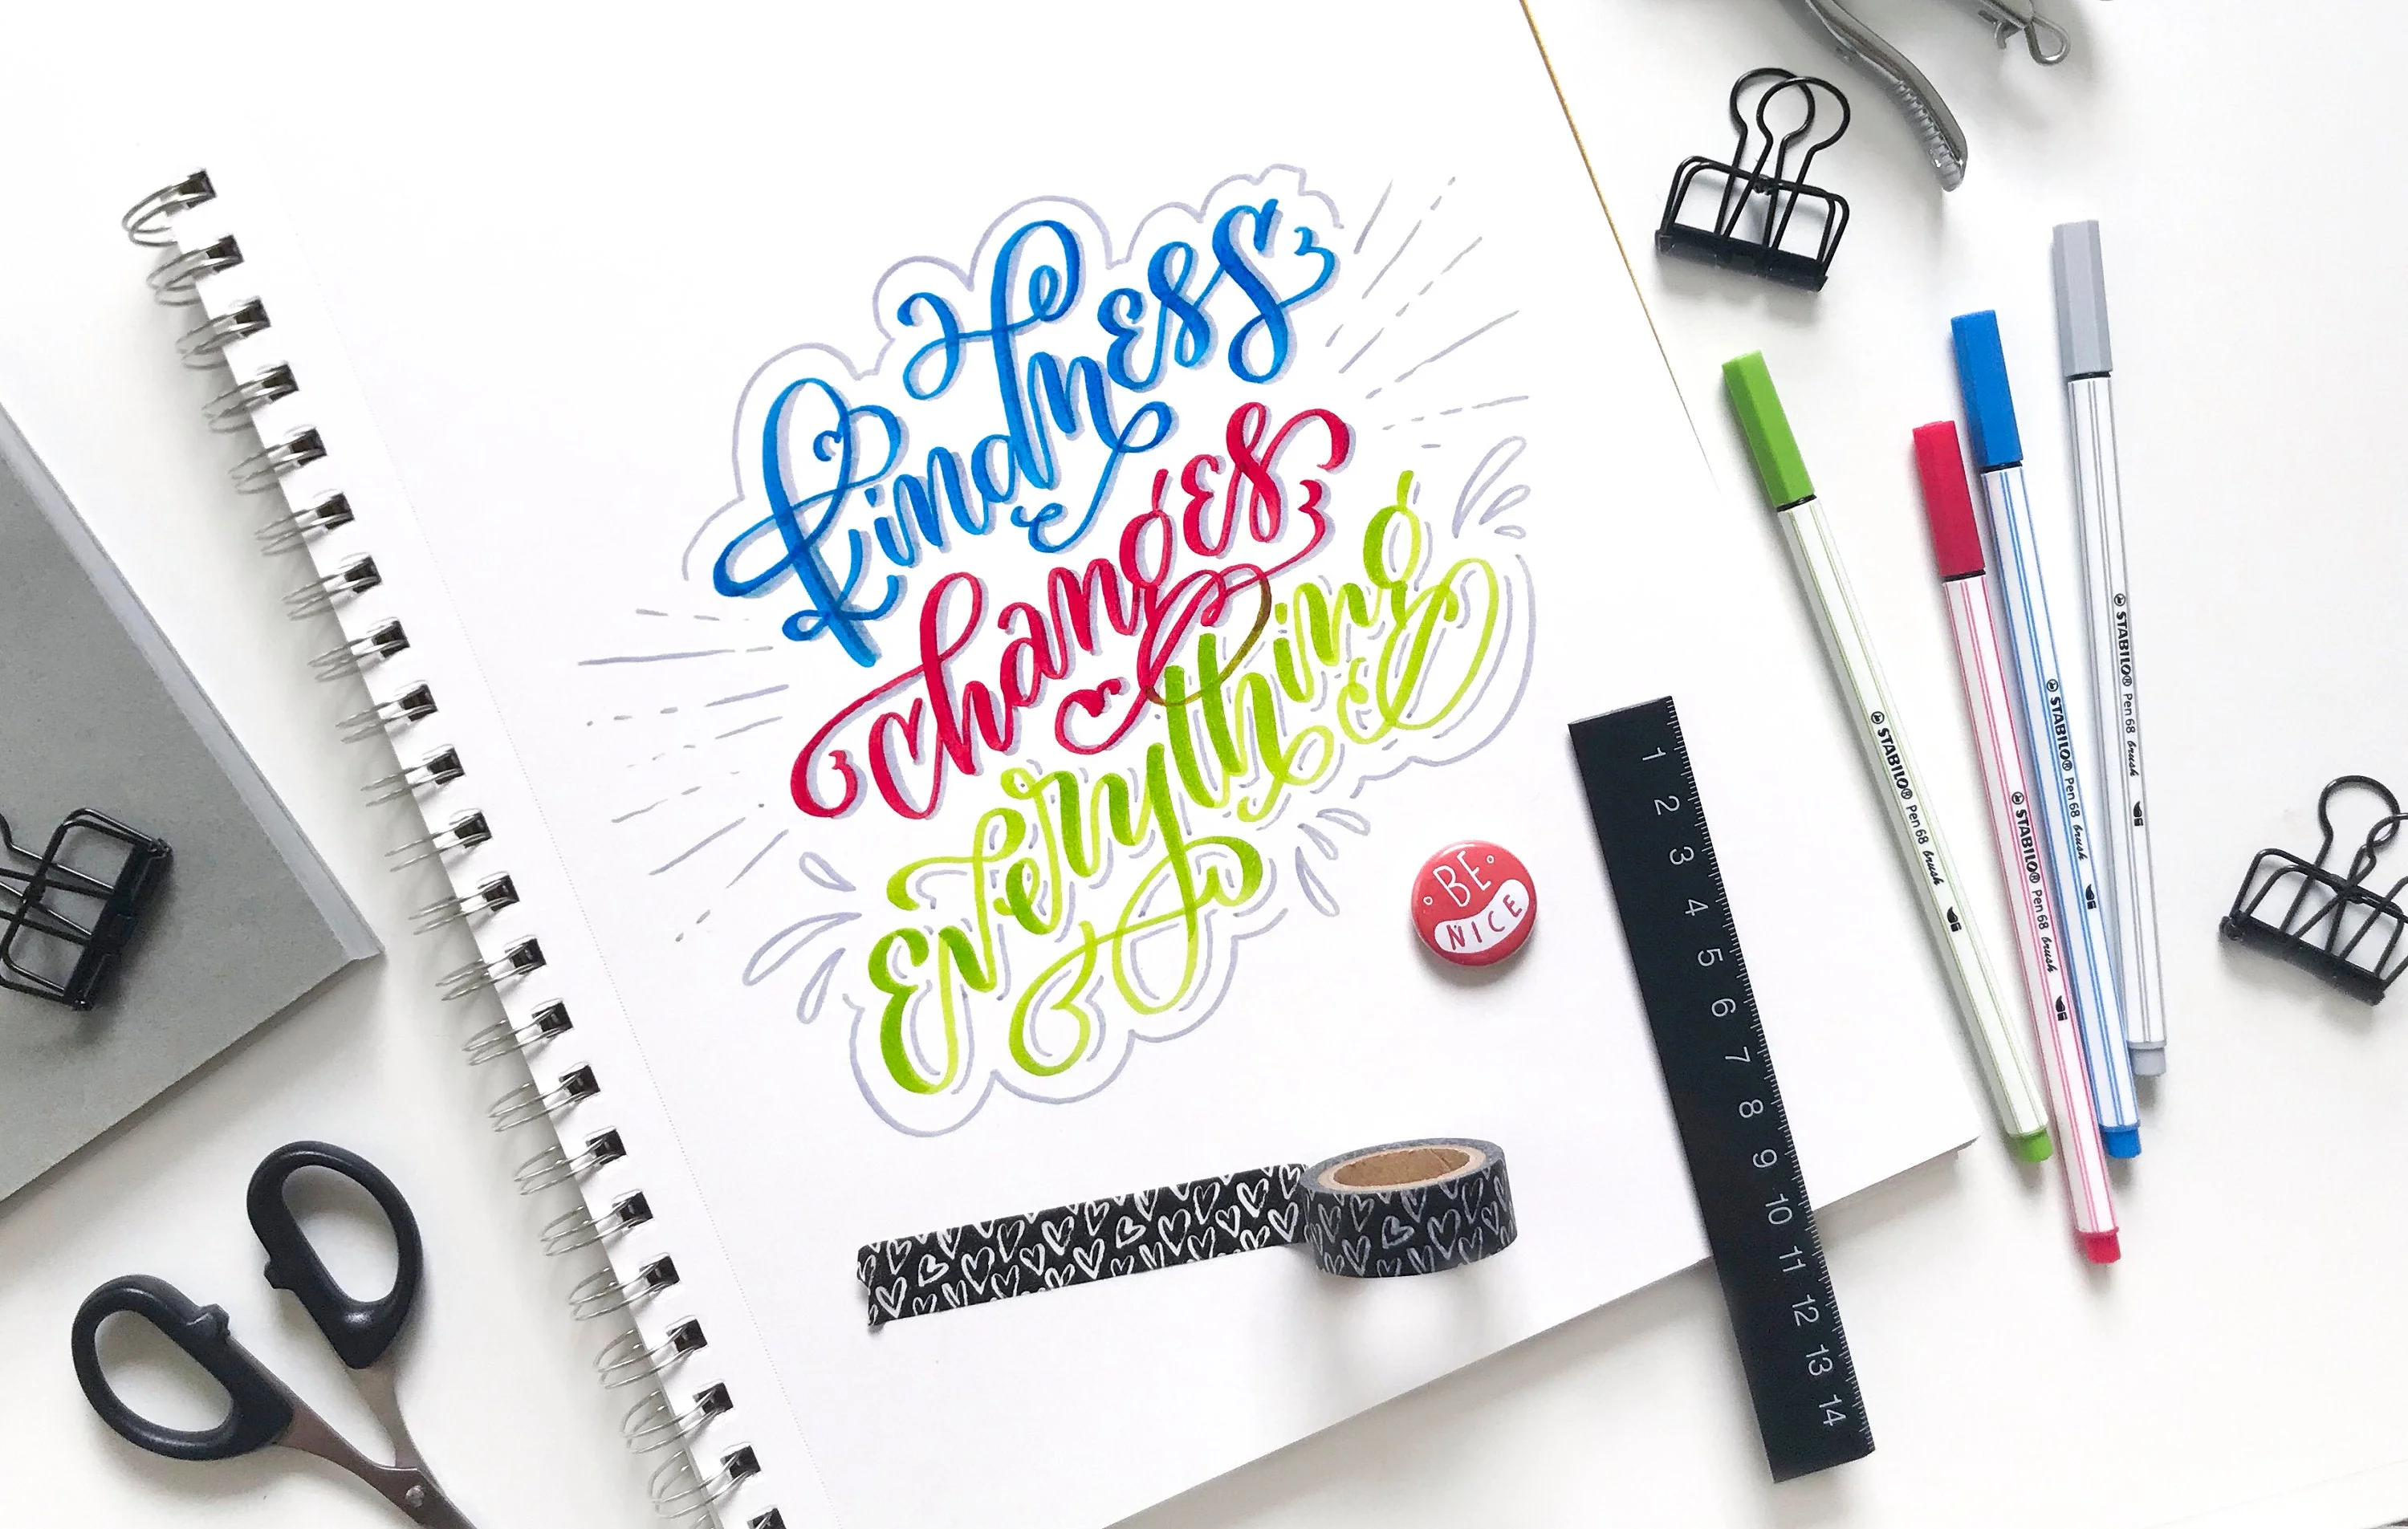 kindness
changes
everything
BE
NICE
1
2
3
4
5
6
7
8
9
10
11
12
13
14
STABILO® Pen 68 brush
STABILO® Pen 68 brush
STABILO® Pen 68 brush
STABILO® Pen 68 brush